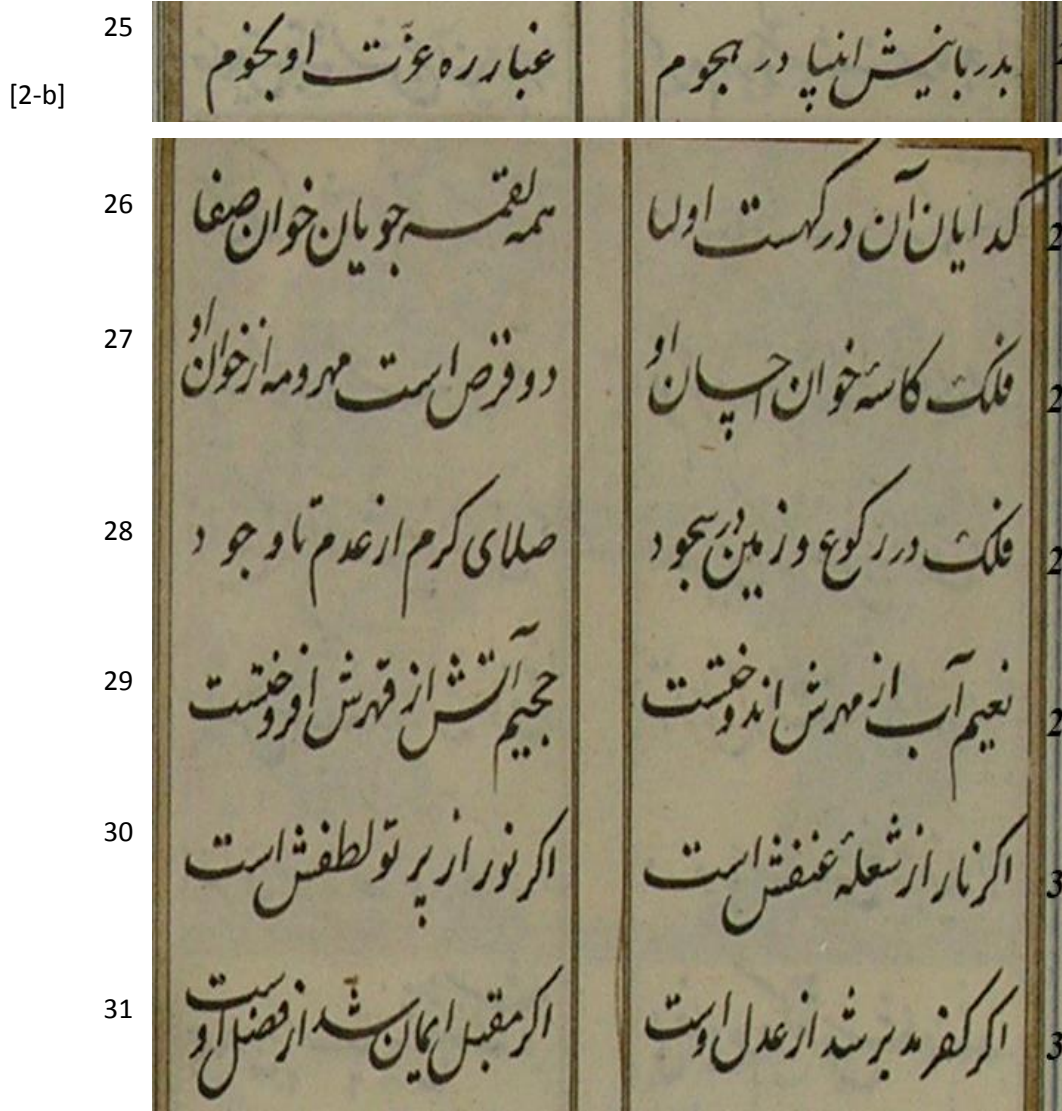 25 بدربانیش انبیا در هجوم غبار ره عزت او نجوم
[2-b]
26 كدایان آن دركهست اولیا همه لقمه جویان خوان صفا
27 فلك كاسهٔ خوان احسان او دو قرص است مهر و مه از خوان او
28 فلك در ركوع و زمین در سجود صلای كرم از عدم تا وجود
29 نعیم آب از مهرش اندوختست جحیم آتش از قهرش افروختست
30 اكر نار از شعلهٔ عنفش است اكر نور از پرتو لطفش است
31 اكر كفر مدبر شد از عدل اوست اكر مقبل ایمان شد از فضل اوست